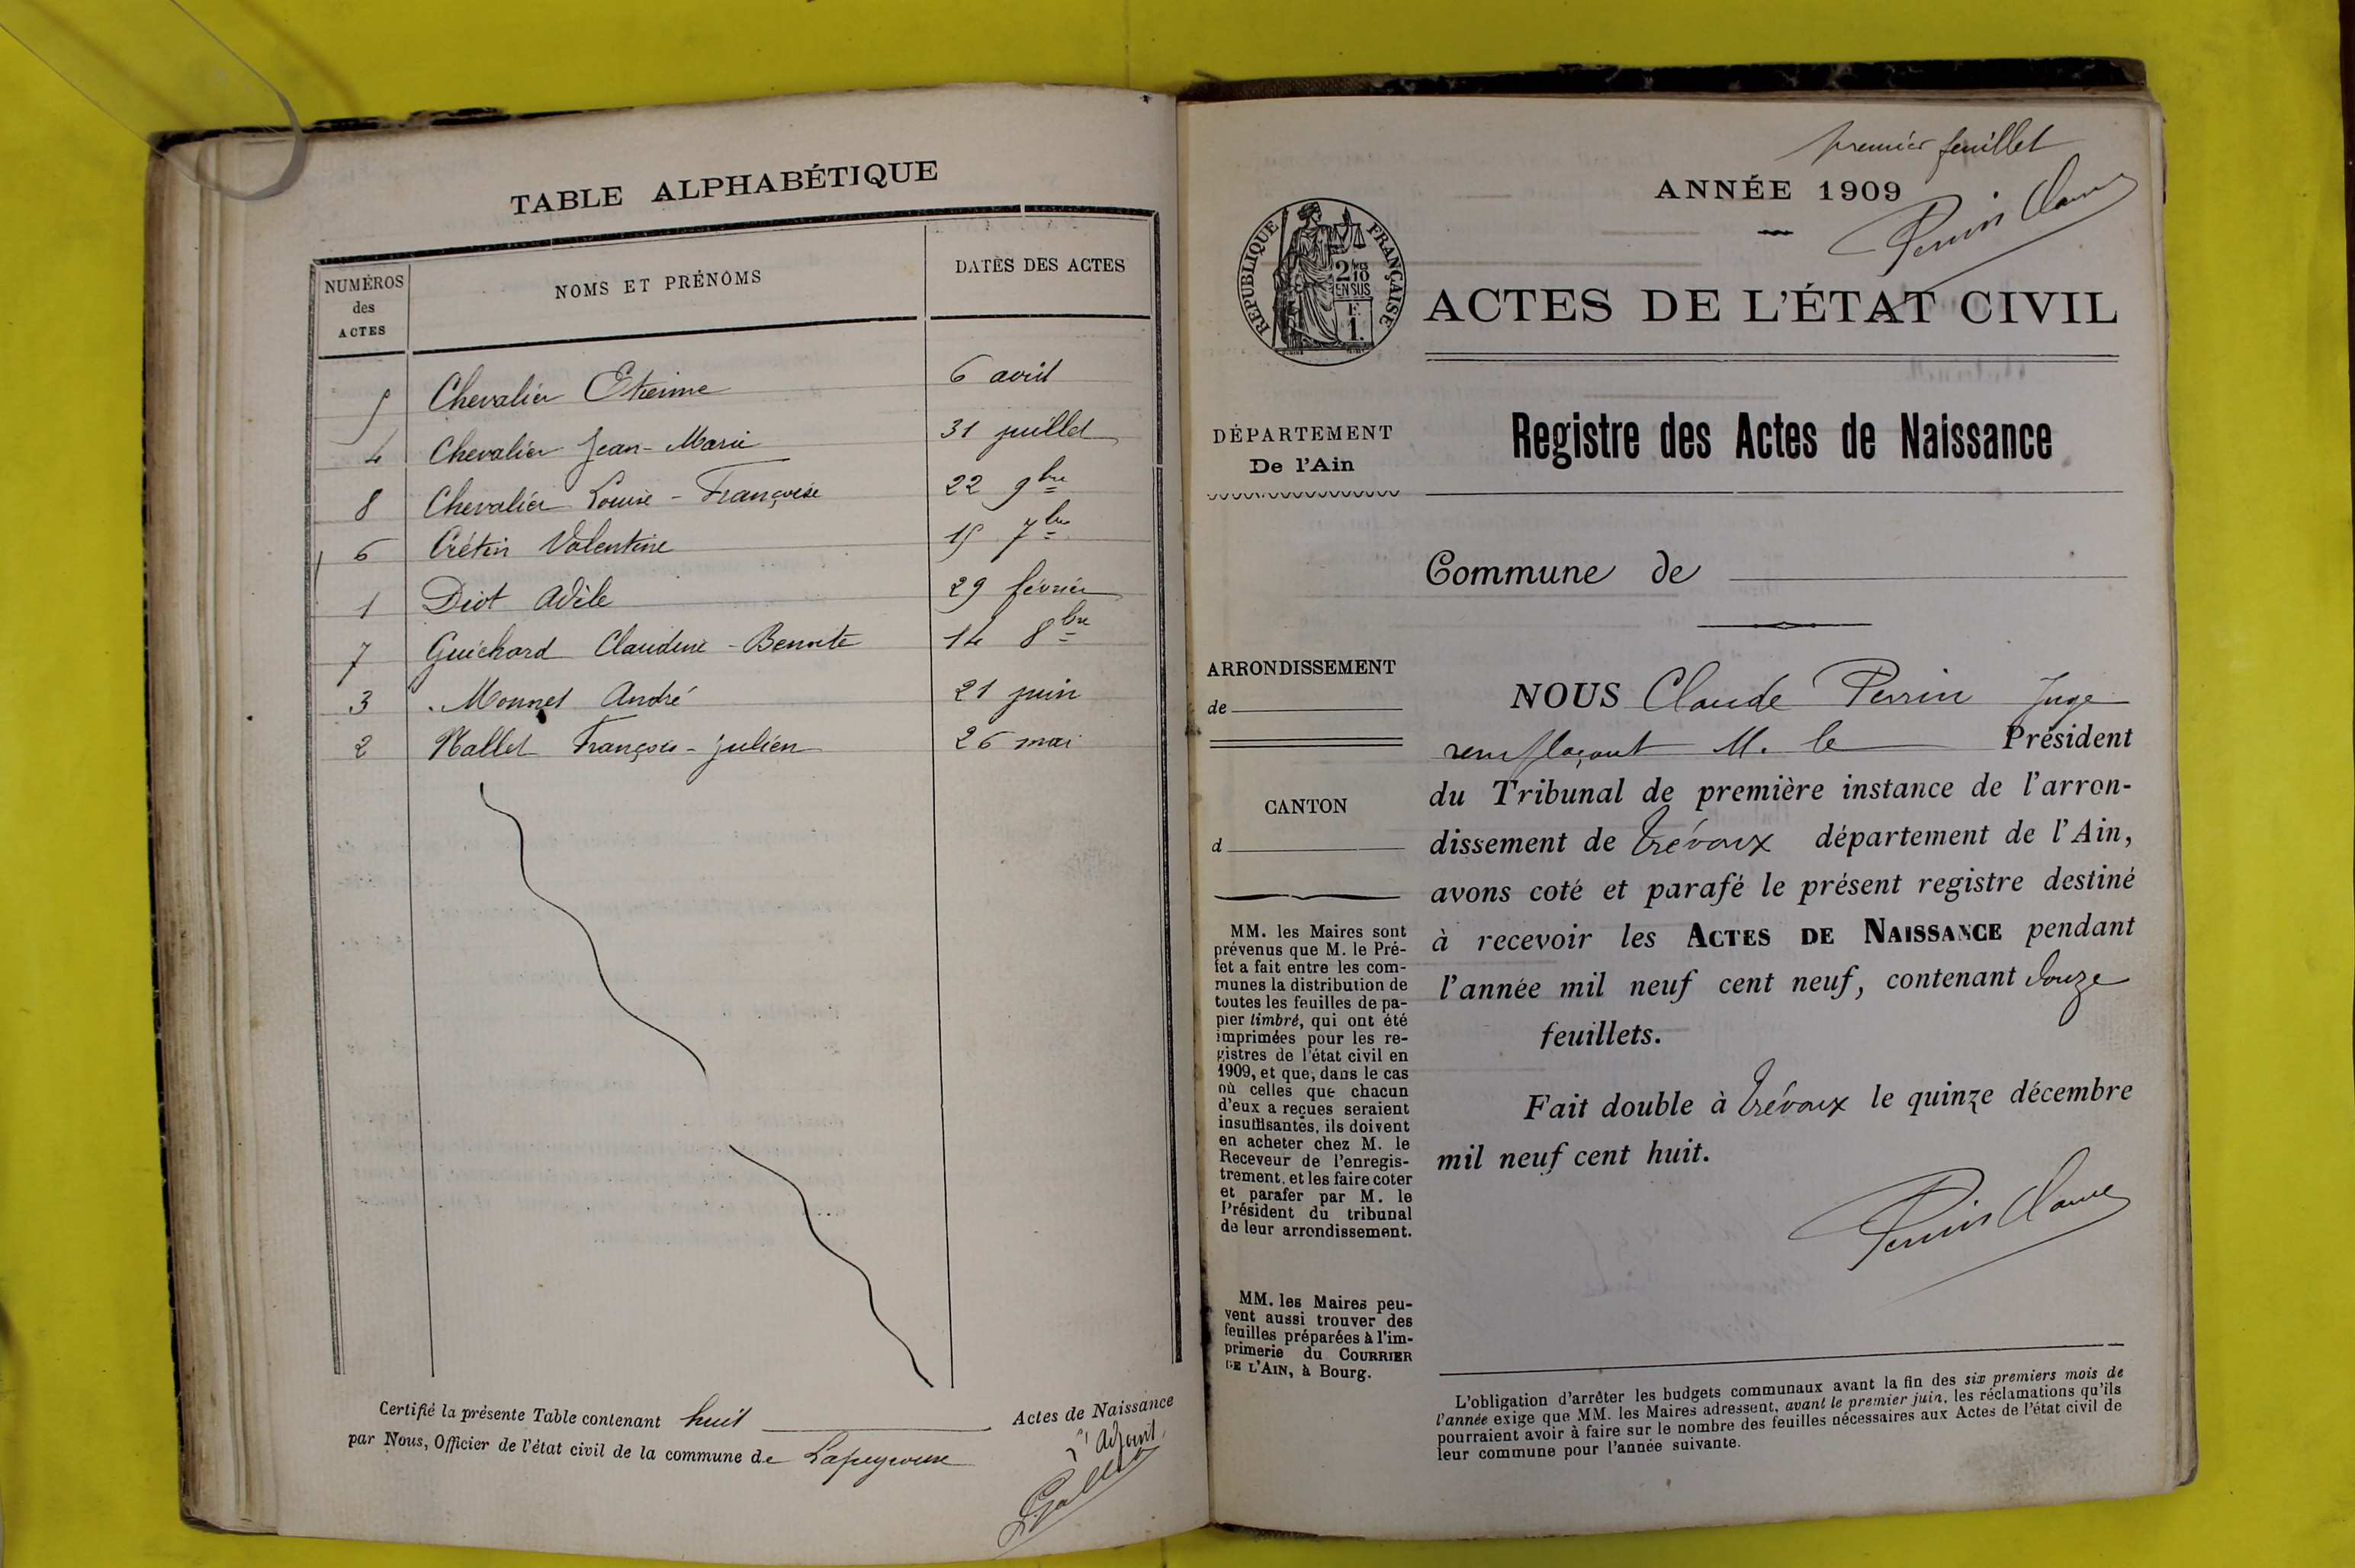 TABLE ALPHABÉTIQUE
NUMÉROS
des
ACTES
NOMS ET PRÉNOMS
DATES DES ACTES
5 Chevalier Etienne 6 avril
4 Chevalier Jean-Marie 31 juillet
8 Chevalier Louise-Françoise 22 9bre
6 Crétin Valentine 15 7bre
1 Diot Adèle 29 février
7 Guichard Claudine-Benoite 14 8bre
3 Monnet André 21 juin
2 Nallet François-julien 26 mai
Certifié la présente Table contenant huit Actes de Naissance
par Nous, Officier de l'état civil de la commune de Lapeyrouse
Adjoint
premier feuillet
ANNÉE 1909
Perrin Claude
RÉPUBLIQUE FRANÇAISE
2/10
EN SUS
F.
1.
ACTES DE L'ÉTAT CIVIL
DÉPARTEMENT
De l'Ain
ARRONDISSEMENT
de
CANTON
d
MM. les Maires sont
prévenus que M. le Pré-
fet a fait entre les com-
munes la distribution de
toutes les feuilles de pa-
pier timbré, qui ont été
imprimées pour les re-
gistres de l'état civil en
1909, et que, dans le cas
où celles que chacun
d'eux a reçues seraient
insuffisantes, ils doivent
en acheter chez M. le
Receveur de l'enregis-
trement, et les faire coter
et parafer par M. le
Président du tribunal
de leur arrondissement.
MM. les Maires peu-
vent aussi trouver des
feuilles préparées à l'im-
primerie du COURRIER
DE L'AIN, à Bourg.
Registre des Actes de Naissance
Commune de
NOUS Claude Perrin Juge
remplaçant M. le Président
du Tribunal de première instance de l'arron-
dissement de Trévoux département de l'Ain,
avons coté et parafé le présent registre destiné
à recevoir les ACTES DE NAISSANCE pendant
l'année mil neuf cent neuf, contenant douze
feuillets.
Fait double à Trévoux le quinze décembre
mil neuf cent huit.
Perrin Claude
L'obligation d'arrêter les budgets communaux avant la fin des six premiers mois de
l'année exige que MM. les Maires adressent, avant le premier juin, les réclamations qu'ils
pourraient avoir à faire sur le nombre des feuilles nécessaires aux Actes de l'état civil de
leur commune pour l'année suivante.